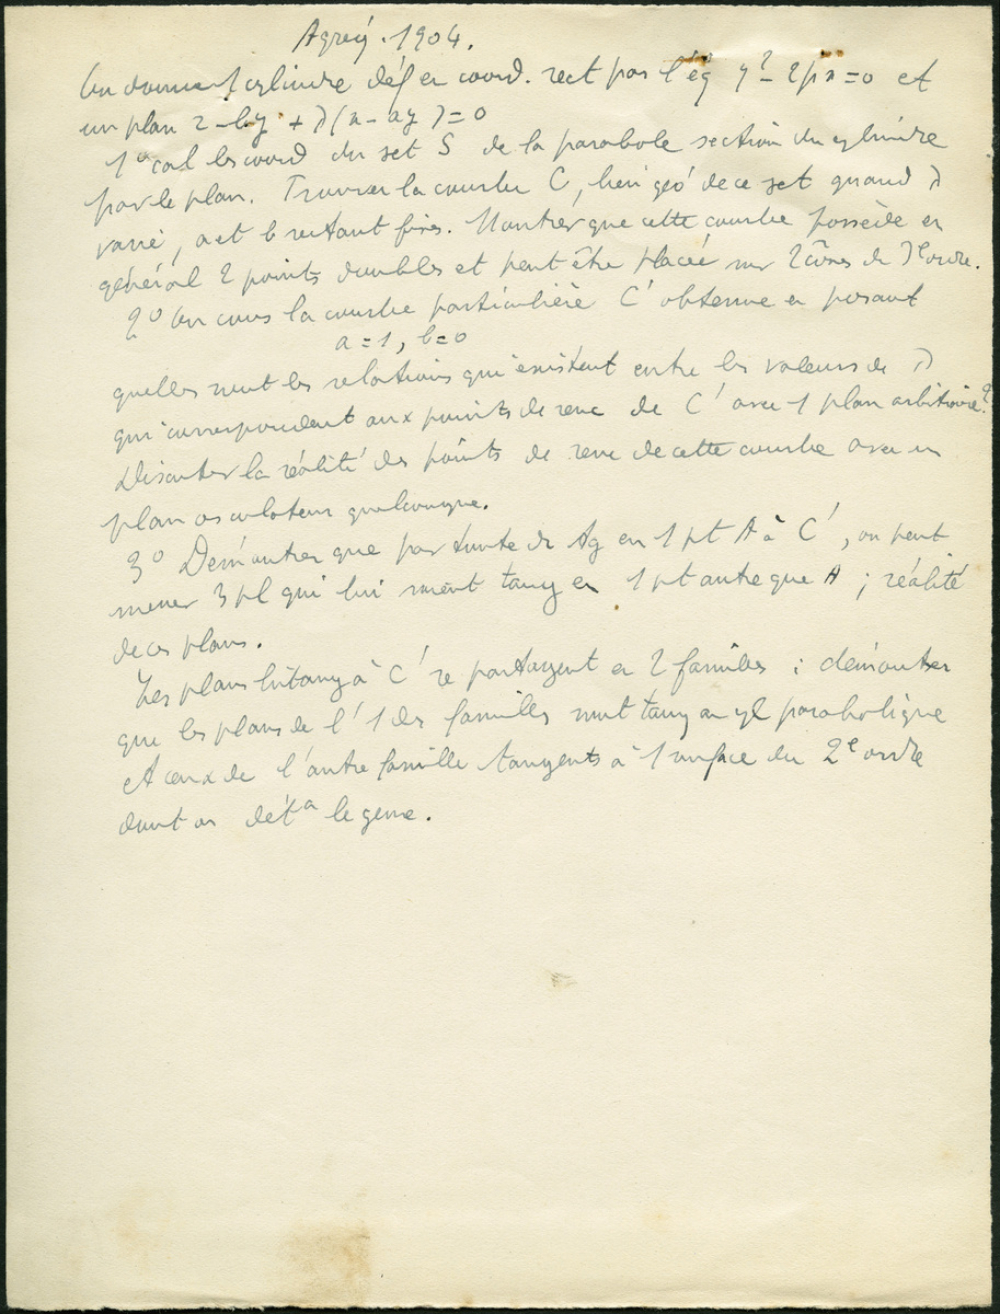 Agrég. 1904.
On donne 1 cylindre déf en coord. rect par l'éq y² - 2px = 0 et
un plan z - by + λ(x - ay) = 0
1° cal les coord du set S de la parabole section du cylindre
par le plan. Trouver la courbe C, lieu géo de ce set quand λ
varie, a et b restant fixes. Montrer que cette courbe possède en
général 2 points doubles et peut être placée sur 2 cônes du 3e ordre.
2° On cons la courbe particulière C' obtenue en posant
a = 1, b = 0
quelles sont les relations qui existent entre les valeurs de λ
qui correspondent aux points de renc de C' avec 1 plan arbitraire?
Discuter la réalité des points de renc de cette courbe avec un
plan osculateur quelconque.
3° Démontrer que par toute dr tg en 1 pt A à C', on peut
mener 3 pl qui lui soient tang en 1 pt autre que A ; réalité
de ces plans.
Les plans bitang à C' se partagent en 2 familles : démontrer
que les plans de l'1 des familles sont tang au cyl parabolique
et ceux de l'autre famille tangents à 1 surface du 2e ordre
dont on dét a le genre.